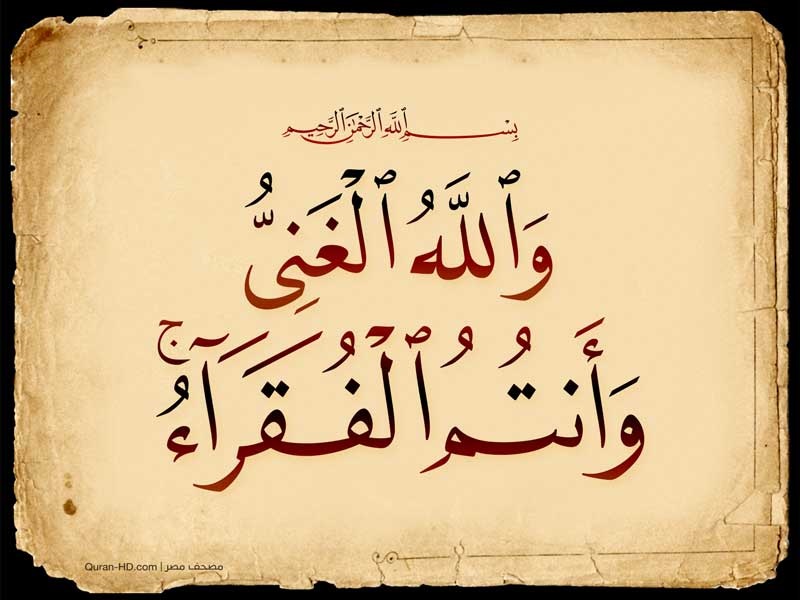 بِسْمِ ٱللَّهِ ٱلرَّحْمَٰنِ ٱلرَّحِيمِ
وَٱللَّهُ ٱلْغَنِىُّ
وَأَنتُمُ ٱلْفُقَرَآءُ ۚ
Quran-HD.com | مصحف مصر